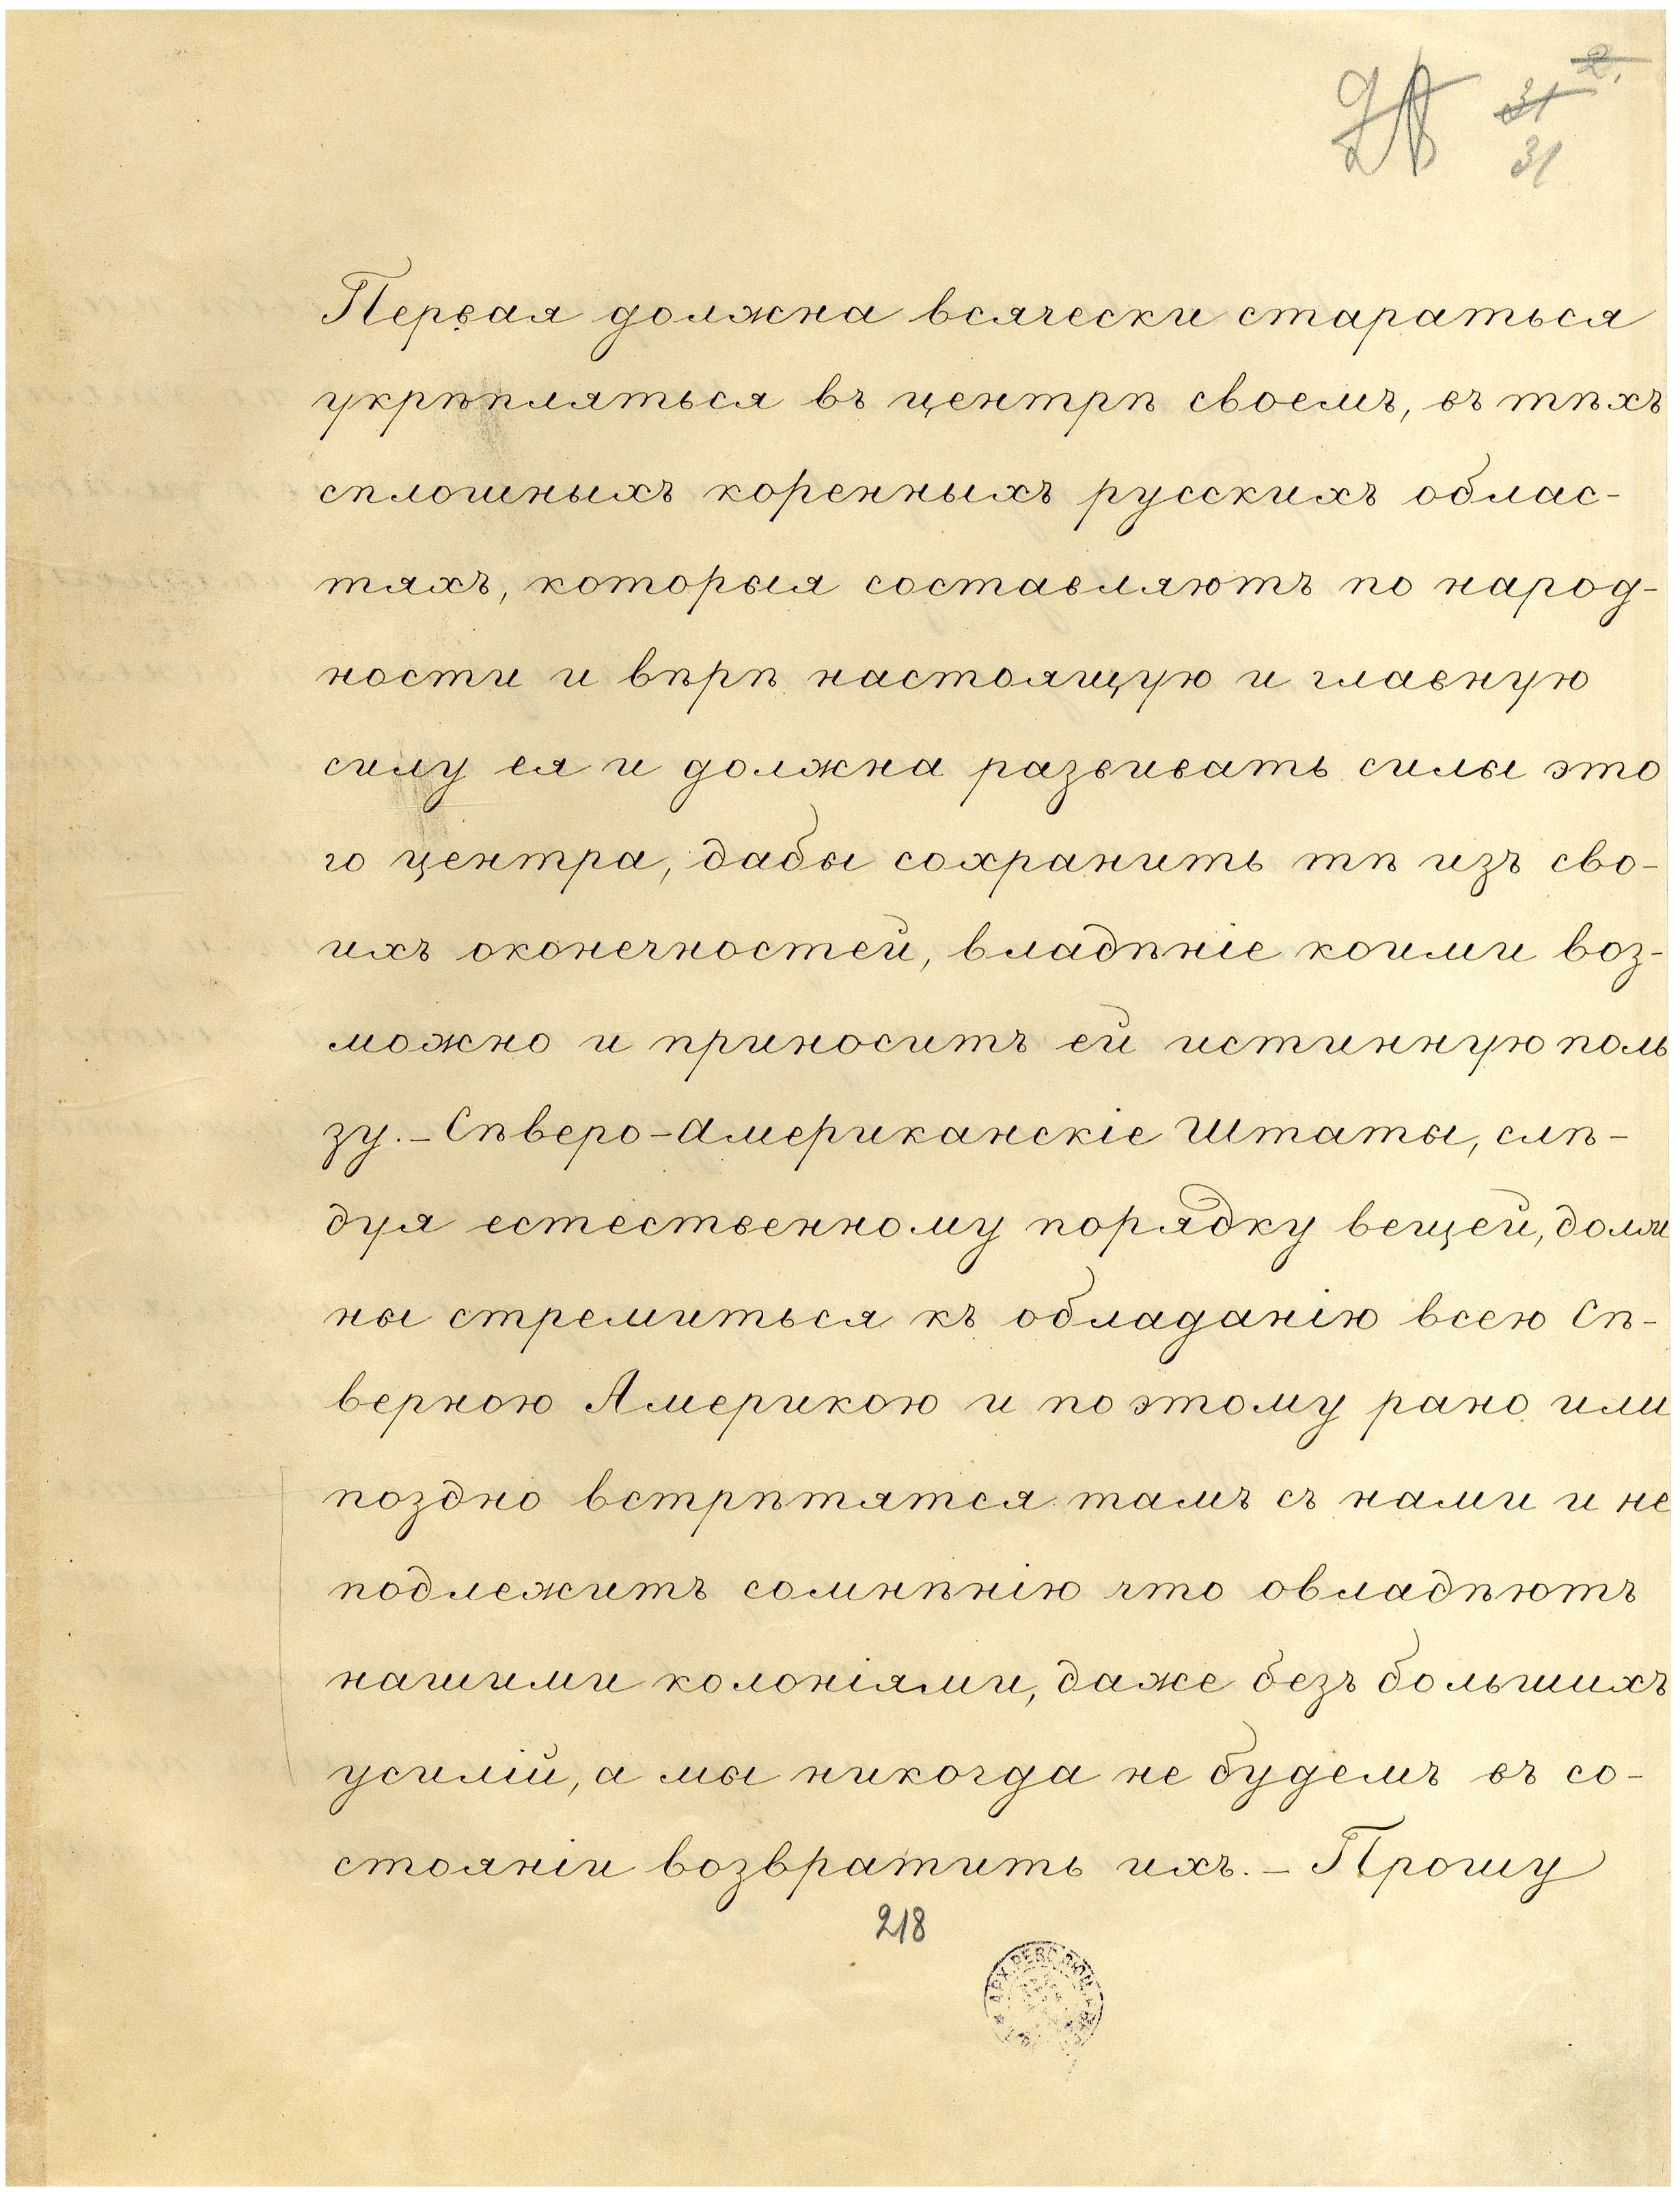 2.
31
31
Первая должна всячески стараться
укрѣпляться въ центрѣ своемъ, въ тѣхъ
сплошныхъ коренныхъ русскихъ облас-
тяхъ, которыя составляютъ по народ-
ности и вѣрѣ настоящую и главную
силу ея и должна развивать силы это
го центра, дабы сохранить тѣ изъ сво-
ихъ оконечностей, владѣніе коими воз-
можно и приноситъ ей истинную поль
зу. – Сѣверо-Американскіе Штаты, слѣ-
дуя естественному порядку вещей, долж
ны стремиться къ обладанію всею Сѣ-
верною Америкою и поэтому рано или
поздно встрѣтятся тамъ съ нами и не
подлежитъ сомнѣнію что овладѣютъ
нашими колоніями, даже безъ большихъ
усилій, а мы никогда не будемъ въ со-
стояніи возвратить ихъ. – Прошу
218